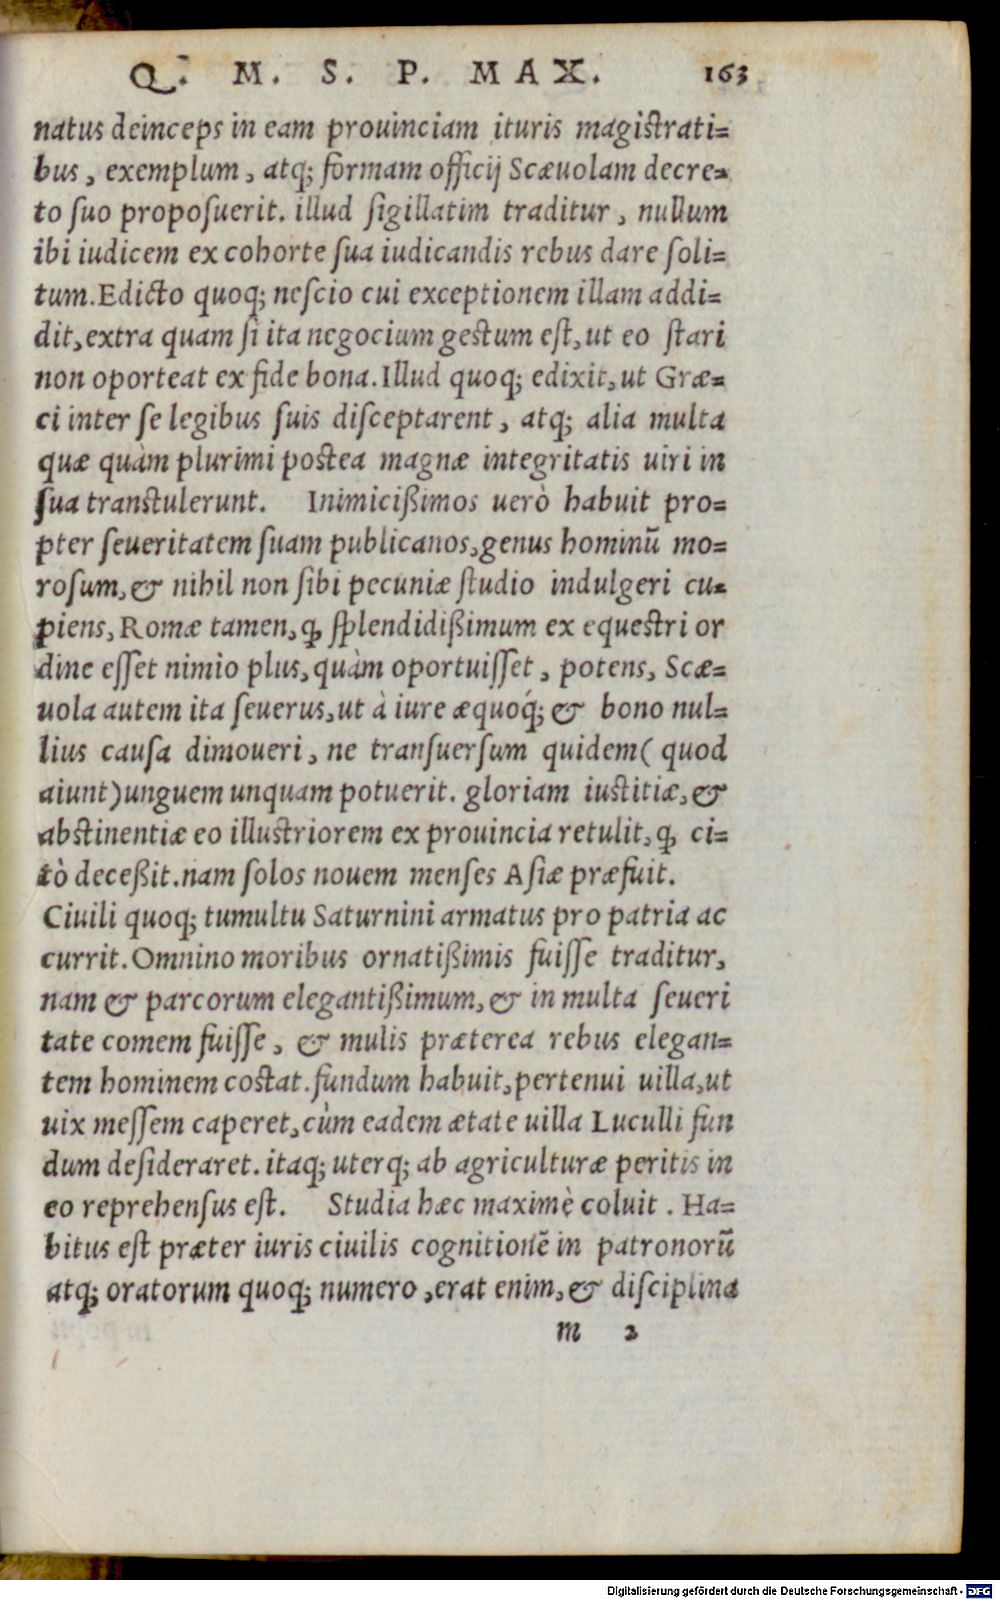 Q. M. S. P. MAX. 163
natus deinceps in eam prouinciam ituris magistrati=
bus, exemplum, atq; formam officij Scæuolam decre=
to suo proposuerit. illud sigillatim traditur, nullum
ibi iudicem ex cohorte sua iudicandis rebus dare soli=
tum. Edicto quoq; nescio cui exceptionem illam addi=
dit, extra quam si ita negocium gestum est, ut eo stari
non oporteat ex fide bona. Illud quoq; edixit, ut Græ=
ci inter se legibus suis disceptarent, atq; alia multa
quæ quàm plurimi postea magnæ integritatis uiri in
sua transtulerunt. Inimicißimos uerò habuit pro=
pter seueritatem suam publicanos, genus hominũ mo=
rosum, & nihil non sibi pecuniæ studio indulgeri cu=
piens, Romæ tamen, ꝙ splendidißimum ex equestri or
dine esset nimio plus, quàm oportuisset, potens, Scæ=
uola autem ita seuerus, ut à iure æquoq́; & bono nul=
lius causa dimoueri, ne transuersum quidem( quod
aiunt) unguem unquam potuerit. gloriam iustitiæ, &
abstinentiæ eo illustriorem ex prouincia retulit, ꝙ ci=
tò deceßit. nam solos nouem menses Asiæ præfuit.
Ciuili quoq; tumultu Saturnini armatus pro patria ac
currit. Omnino moribus ornatißimis fuisse traditur,
nam & parcorum elegantißimum, & in multa seueri
tate comem fuisse, & mulis præterea rebus elegan=
tem hominem costat. fundum habuit, pertenui uilla, ut
uix messem caperet, cùm eadem ætate uilla Luculli fun
dum desideraret. itaq; uterq; ab agriculturæ peritis in
eo reprehensus est. Studia hæc maximè coluit. Ha=
bitus est præter iuris ciuilis cognitionẽ in patronorũ
atq; oratorum quoq; numero, erat enim, & disciplina
m 2
Digitalisierung gefördert durch die Deutsche Forschungsgemeinschaft - DFG